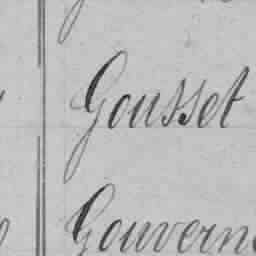 Gousset
Gouvern